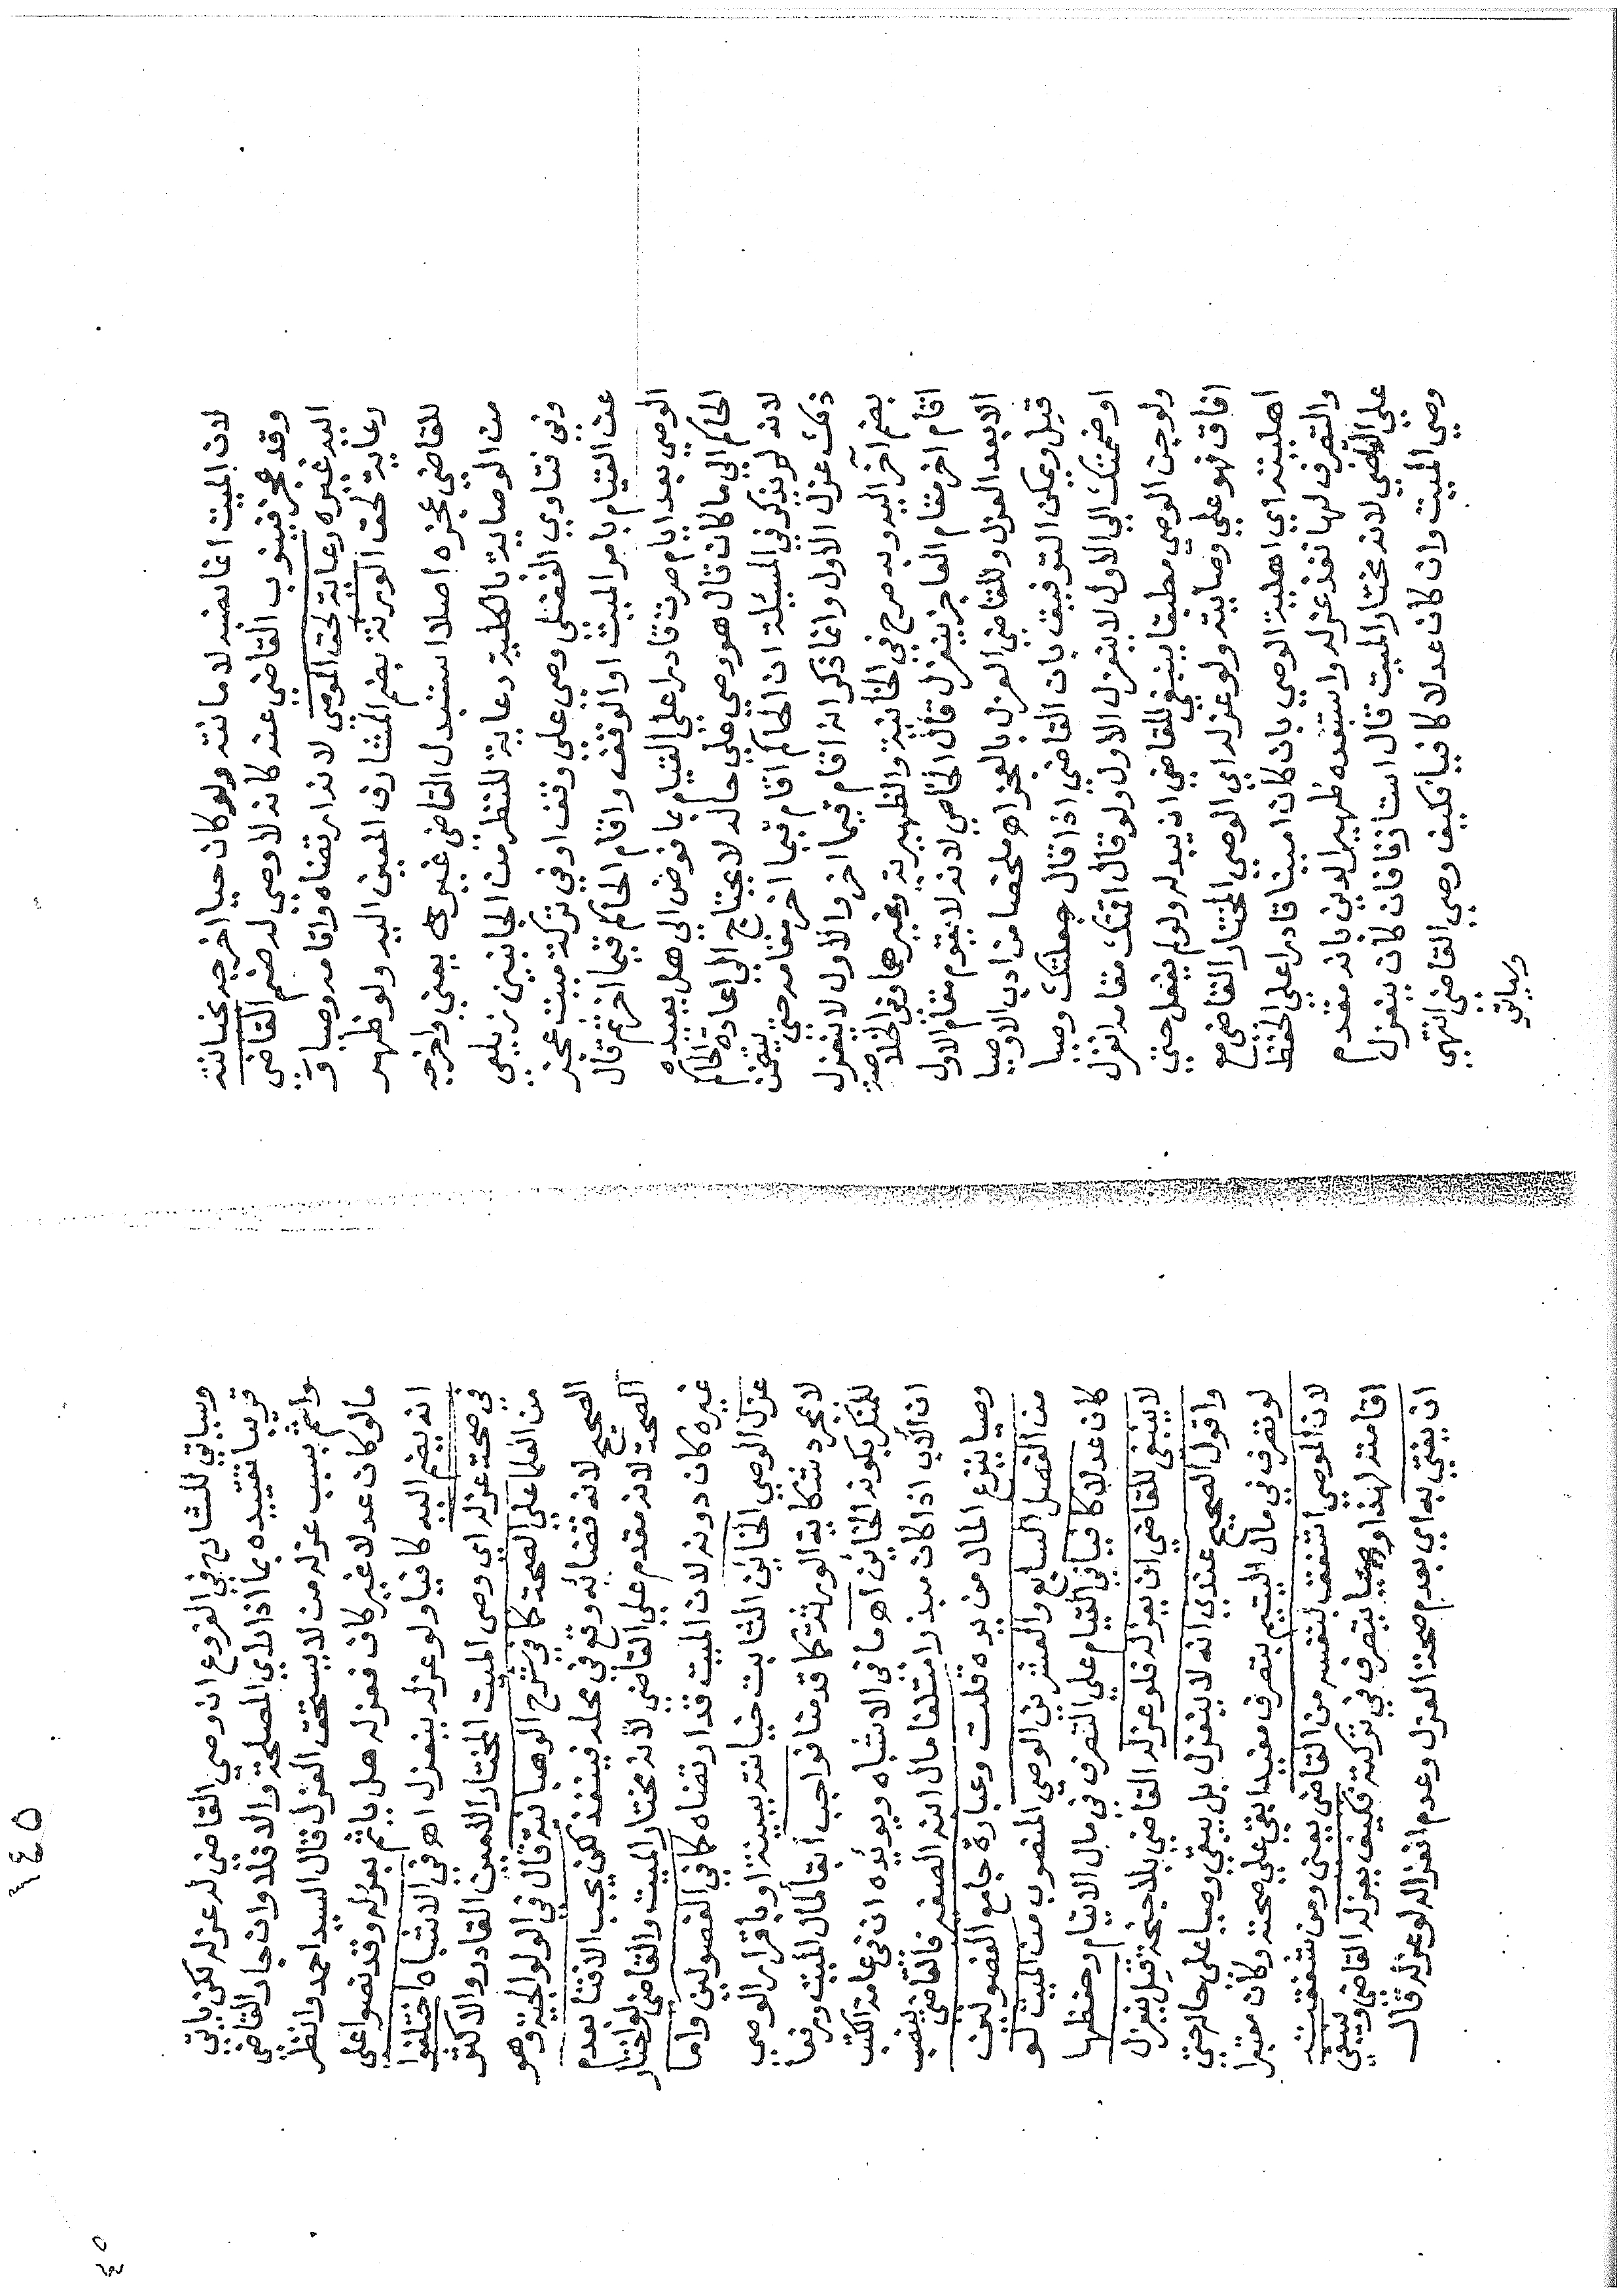 لان الميت انما نصبه لامانته ولو كان حيا اخرجه بخيانته
وقد عجز فينوب القاضي عنه كانه لا وصي له ضم القاضي
اليه غيره رعاية لحق الموصي لانه ارتضاه واقامه وصيا و
رعاية لحق الورثة بضم المشارف المعين اليه ولو ظهر
للقاضي عجزه اصلا استبدل القاضي غيره يعني واخرجه
من الوصاية بالكلية رعاية للنظر من الجانبين زيلعي
وفي فتاوي الفضلي وصي علي وقف او في تركة ميت عجز
عن القيام بامر الميت او الوقف واقام الحاكم قيما اخر ثم قال
الوصي بعد ايام صرت قادرا علي القيام بما فوض الي هل يعيده
الحاكم الي ما كان قال هو وصي علي حاله لا يحتاج الي اعادة الحاكم
لانه لم يذكر في المسئلة ان الحاكم اقام قيما اخر مقامه حتي يتضمن
ذلك عزل الاول وانما ذكر انه اقام قيما اخر والاول لا ينعزل
بضم آخر اليه وبه صرح في الخانية والظهيرية وغيرهما وفي الخلاصة
اقام اخر مقام العاجز ينعزل قال الخاصي لانه لا يقوم مقام الاول
الا بعد العزل وللقاضي العزل بالعجز اه ملخصا من ادب الاوصيا
قيل ويمكن التوفيق بان القاضي اذا قال جعلتك وصيا
او ضممتك الي الاول لا ينعزل الاول ولو قال اقمتك مقامه انعزل
ولو جن الوصي مطبقا ينبغي للقاضي ان يبدله ولو لم يفعل حتي
افاق فهو علي وصايته ولو عزله اي الوصي المختار القاضي مع
اهليته اي اهلية الوصي بان كان امينا قادرا علي الحفظ
والتصرف لها نفذ عزله واستبعده ظهير الدين بانه مقدم
علي القاضي لانه مختار الميت قال استاذنا فان كان ينعزل
وصي الميت وان كان عدلا كافيا فكيف وصي القاضي انتهي
وسياتي
١٤٥
وسياتي للشارح في الفروع ان وصي القاضي له عزله لكن ياتي
قريبا تقييده بما اذا راي المصلحة والا فلا وان جار القاضي
واثم بسبب عزله من لا يستحق العزل قال السيد احمد وانظر
ما لو كان عدلا غير كاف فعزله هل ياثم بعزله وقد نصوا علي
انه يضم اليه كافيا ولو عزله ينعزل اه في الاشباه اختلفوا
في صحة عزله اي وصي الميت المختار الامين القادر والاكثر
من العلما علي الصحة كما في شرح الوهبانية قال في الولوالجية وهو
الصحيح لانه قضائه وقع في محله فينفذ لكن يجب الافتا بعدم
الصحة لانه مقدم علي القاضي لانه مختار الميت والقاضي لو اختار
غيره كان دونه لان الميت قد ارتضاه كما في الفصولين واما
عزل الوصي الخائن الثابت خيانته ببينة او باقرار الوصي
لا بمجرد شكاية الورثة كما قدمنا فواجب ابقا لمال الميت ورفعا
للمنكر بكونه الخائن اه ما في الاشباه ويؤيده ان في عامة الكتب
ان الاب اذا كان مبذرا متلفا مال ابنه الصغير فالقاضي ينصب
وصيا ينزع المال من يده قلت وعبارة جامع الفصولين
من الفصل السابع والعشرين الوصي المنصوب من الميت لو
كان عدلا كافيا في القيام علي التصرف في مال الايتام وحفظها
لا ينبغي للقاضي ان يعزله فلو عزله القاضي بلا جنحة قيل ينعزل
واقول الصحيح عندي انه لا ينعزل بل يبقي وصيا علي حاله حتي
لو تصرف في مال اليتيم بتصرف مفيد ابقي علي صحته وكان معتبرا
لان الموصي اشفق لنفسه من القاضي يعني ومن شفقته
اقامته لهذا وصيا يتصرف في تركته فكيف يعزله القاضي وينبغي
ان يفتي به اي بعدم صحة العزل وعدم انعزاله لو عزله قال
٤٥